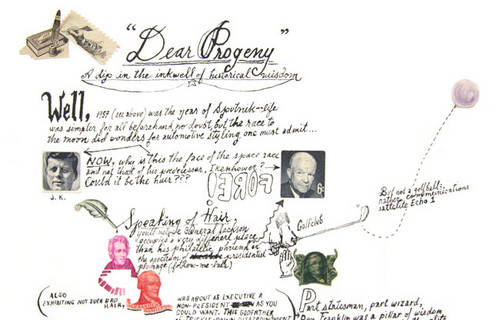 "Dear Progeny"
A dip in the inkwell of historical wisdom
Well, 1957 (see above) was the year of Sputnik—life
was simpler for all beforehand no doubt, but the race to
the moon did wonders for automotive styling one must admit...
NOW, why is this the face of the space race
and not that of his predecessor, Eisenhower?
Could it be the hair???
J.K.
FORE!
6c
But not a golfball;
rather, communications
satellite Echo 1
Golf club
Speaking of Hair,
you'll notice General Jackson
occupies a very different place
than his philatelic phriend in
the pantheon of presidential
plumage (follow me half)
(ALSO
EXHIBITING NOT SUCH BAD HAIR,
WAS ABOUT AS EXECUTIVE A
NON-PRESIDENT AS YOU
COULD WANT. THIS GODFATHER
Part statesman, part wizard,
Ben Franklin was a pillar of wisdom